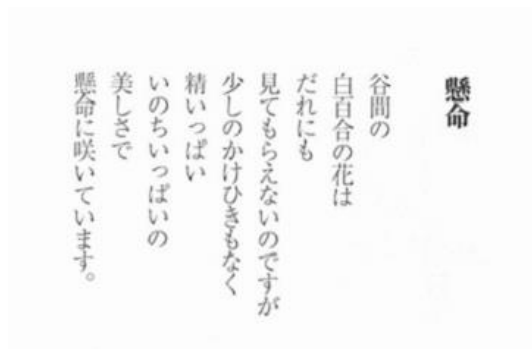 懸命
谷間の
白百合の花は
だれにも
見てもらえないのですが
少しのかけひきもなく
精いっぱい
いのちいっぱいの
美しさで
懸命に咲いています。